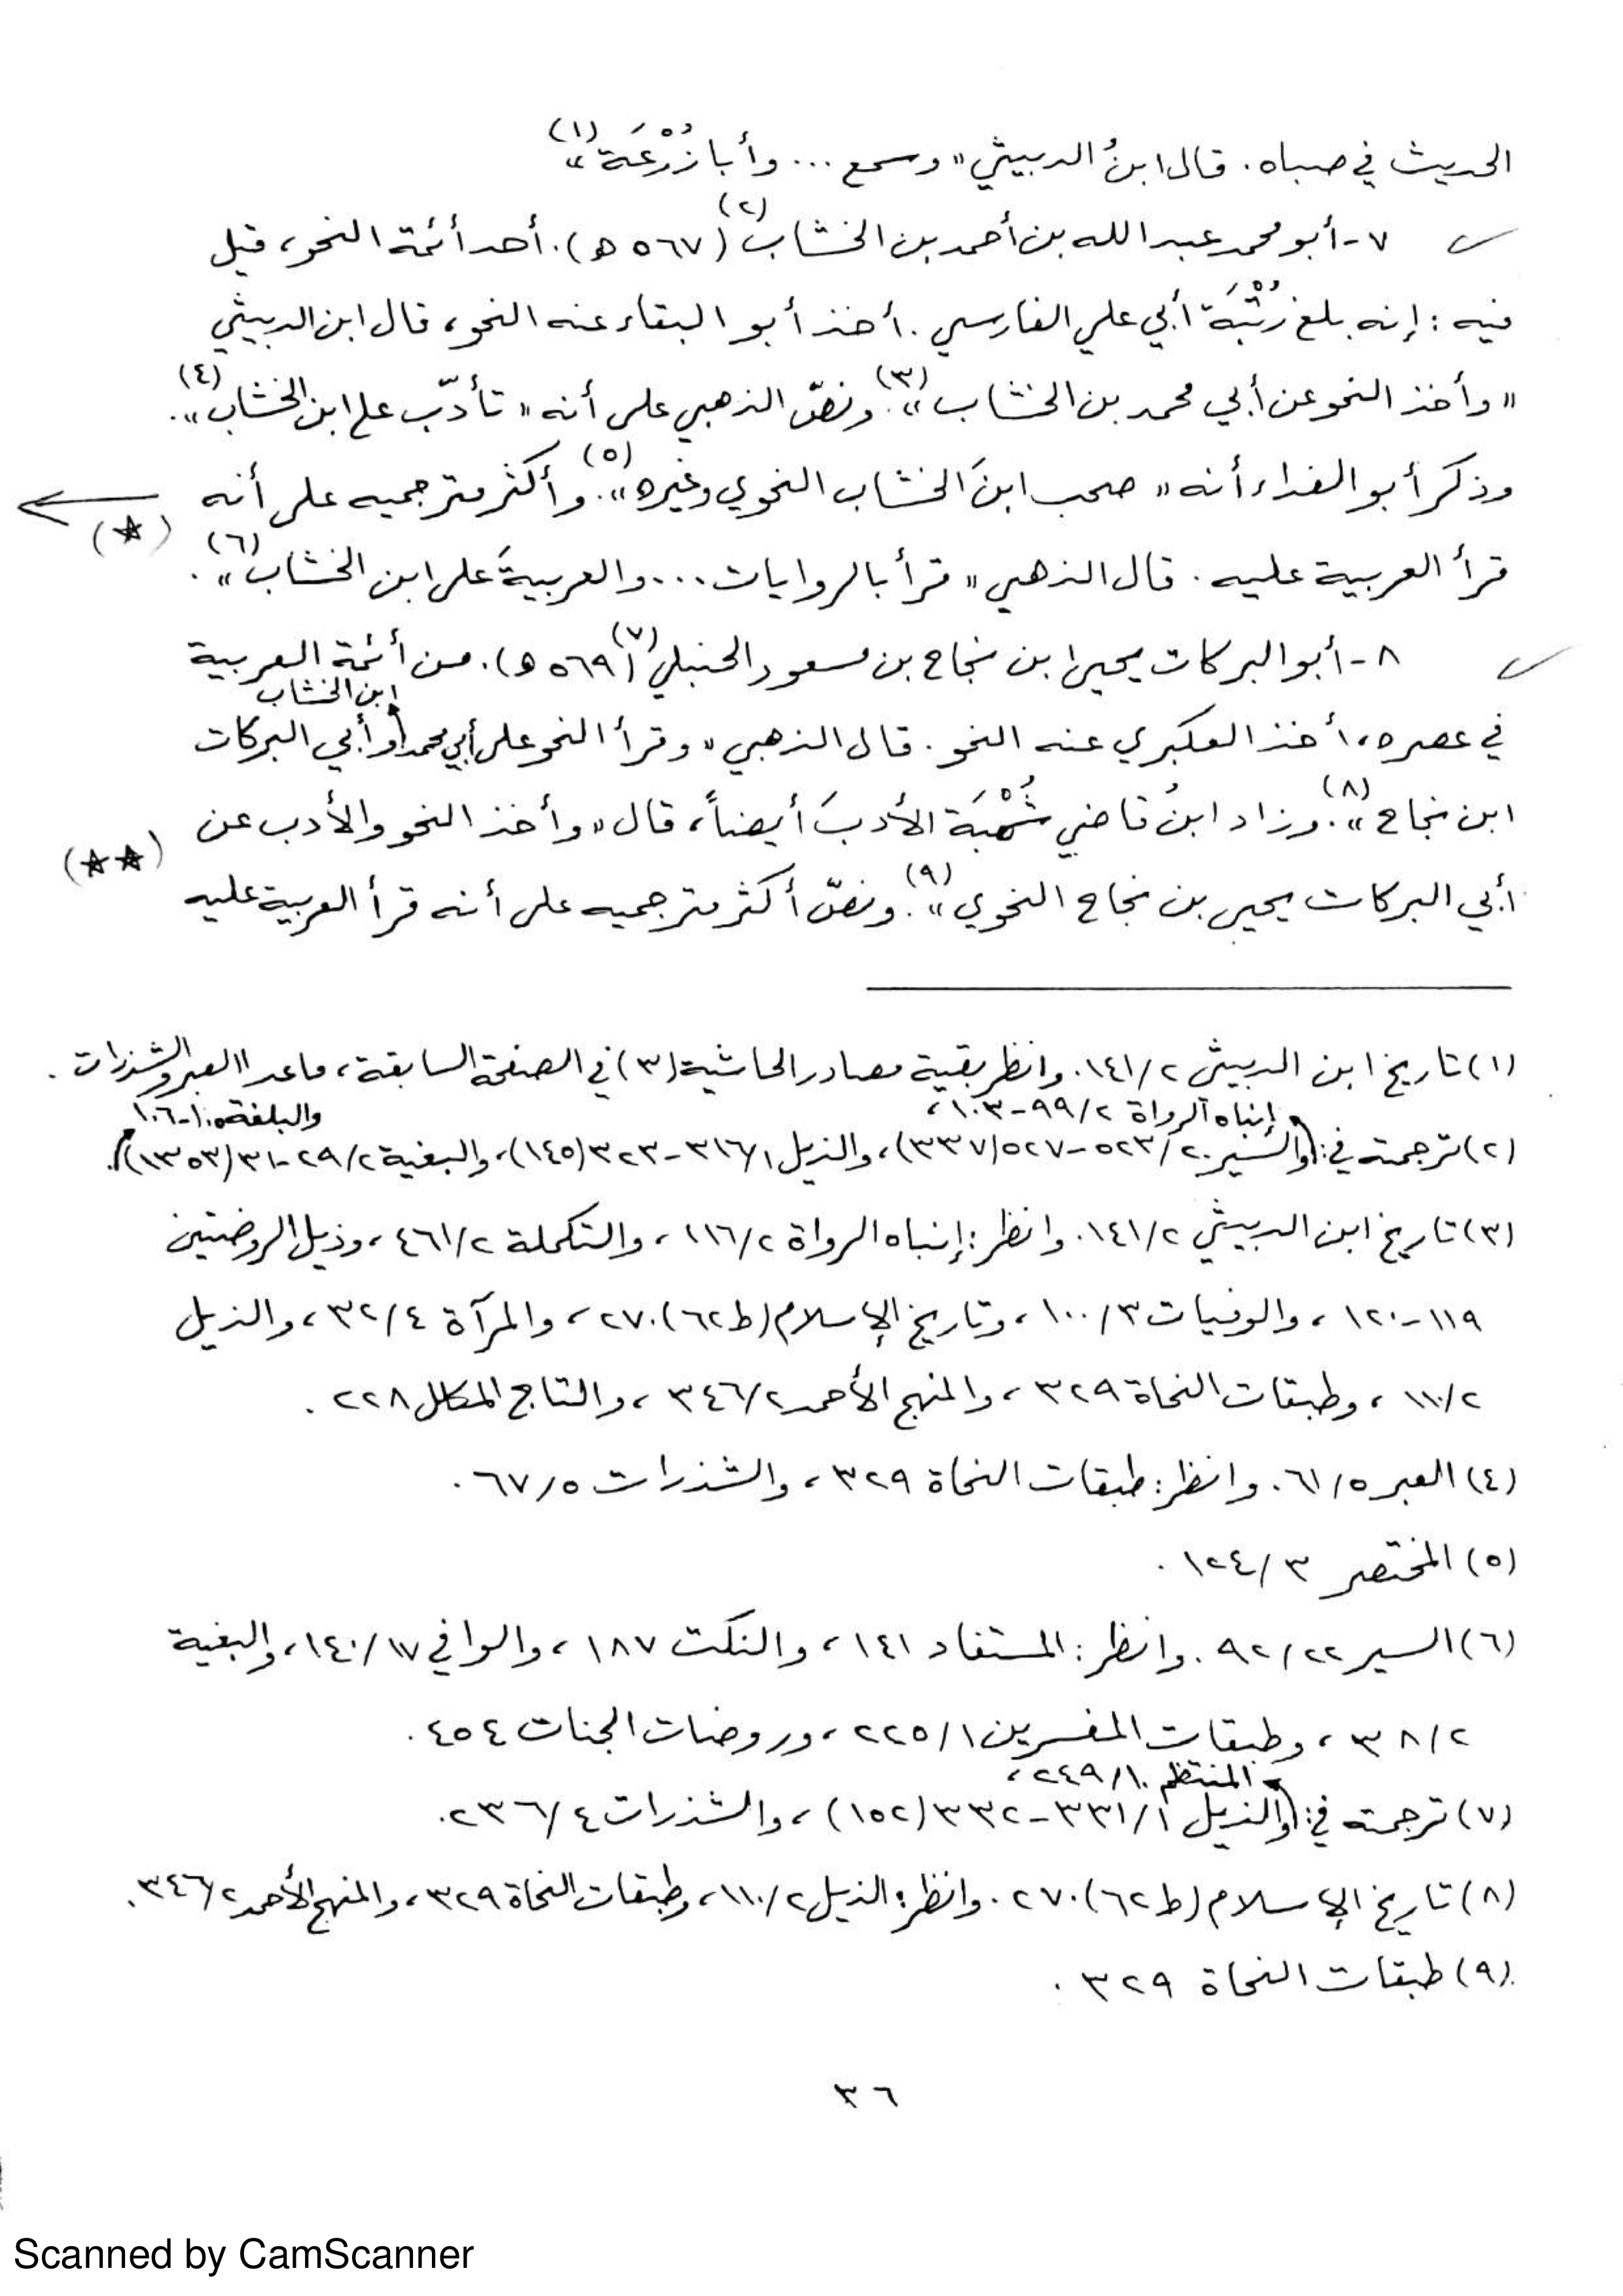 الحديث في صباه. قال ابنُ الدبيثي «وسمع ... وأبا زُرْعَة»(١)
٧- أبو محمد عبد الله بن أحمد بن الخشاب(٢) (٥٦٧ ه). أحد أئمة النحو، قيل
فيه: إنه بلغ رُتْبَة أبي علي الفارسي. أخذ أبو البقاء عنه النحو، قال ابن الدبيثي
«وأخذ النحو عن أبي محمد بن الخشاب»(٣). ونصّ الذهبي على أنه «تأدّب على ابن الخشاب»(٤).
وذكر أبو الفداء أنه «صحب ابنَ الخشاب النحوي وغيره»(٥). وأكثر مترجميه على أنه
(★)
قرأ العربية عليه. قال الذهبي «قرأ بالروايات ... والعربيةَ على ابن الخشاب»(٦).
٨- أبو البركات يحيى ابن نجاح بن مسعود الحنبلي(٧) (٥٦٩ ه). من أئمة العربية
ابن الخشاب
في عصره، أخذ العكبري عنه النحو. قال الذهبي «وقرأ النحو على أبي محمد وأبي البركات
ابن نجاح»(٨). وزاد ابنُ قاضي شُهْبَة الأدبَ أيضاً، قال «وأخذ النحو والأدب عن
(★★)
أبي البركات يحيى بن نجاح النحوي»(٩). ونصّ أكثر مترجميه على أنه قرأ العربية عليه
(١) تاريخ ابن الدبيثي ١٤١/٢. وانظر بقية مصادر الحاشية (٣) في الصفحة السابقة، ماعدا العبر والشذرات.
إنباه الرواة ٩٩/٢-١٠٣، والبلغة ١٠٥-١٠٦
(٢) ترجمته في: والسير ٥٢٣/٢٠-٥٢٧ (٣٣٧)، والذيل ٣١٦/١-٣٢٣ (١٤٥)، والبغية ٢٩/٢-٣١ (١٣٥٣).
(٣) تاريخ ابن الدبيثي ١٤١/٢. وانظر: إنباه الرواة ١١٦/٢، والتكملة ٤٦١/٢، وذيل الروضتين
١١٩-١٢٠، والوفيات ١٠٠/٣، وتاريخ الإسلام (ط ٦٢) ٢٧٠، والمرآة ٣٢/٤، والذيل
١١٠/٢، وطبقات النحاة ٣٢٩، والمنهج الأحمد ٣٤٦/٢، والتاج المكلل ٢٢٨.
(٤) العبر ٦١/٥. وانظر: طبقات النحاة ٣٢٩، والشذرات ٦٧/٥.
(٥) المختصر ١٢٤/٣.
(٦) السير ٩٢/٢٢. وانظر: المستفاد ١٤١، والنكت ١٨٧، والوافي ١٤٠/١٧، والبغية
٣٨/٢، وطبقات المفسرين ٢٢٥/١، وروضات الجنات ٤٥٤.
المنتظم ٢٤٩/١٠،
(٧) ترجمته في: والذيل ٣٣١/١-٣٣٢ (١٥٢)، والشذرات ٢٣٦/٤.
(٨) تاريخ الإسلام (ط ٦٢) ٢٧٠. وانظر: الذيل ١١٠/٢، وطبقات النحاة ٣٢٩، والمنهج الأحمد ٣٤٦/٢.
(٩) طبقات النحاة ٣٢٩.
٣٦
Scanned by CamScanner